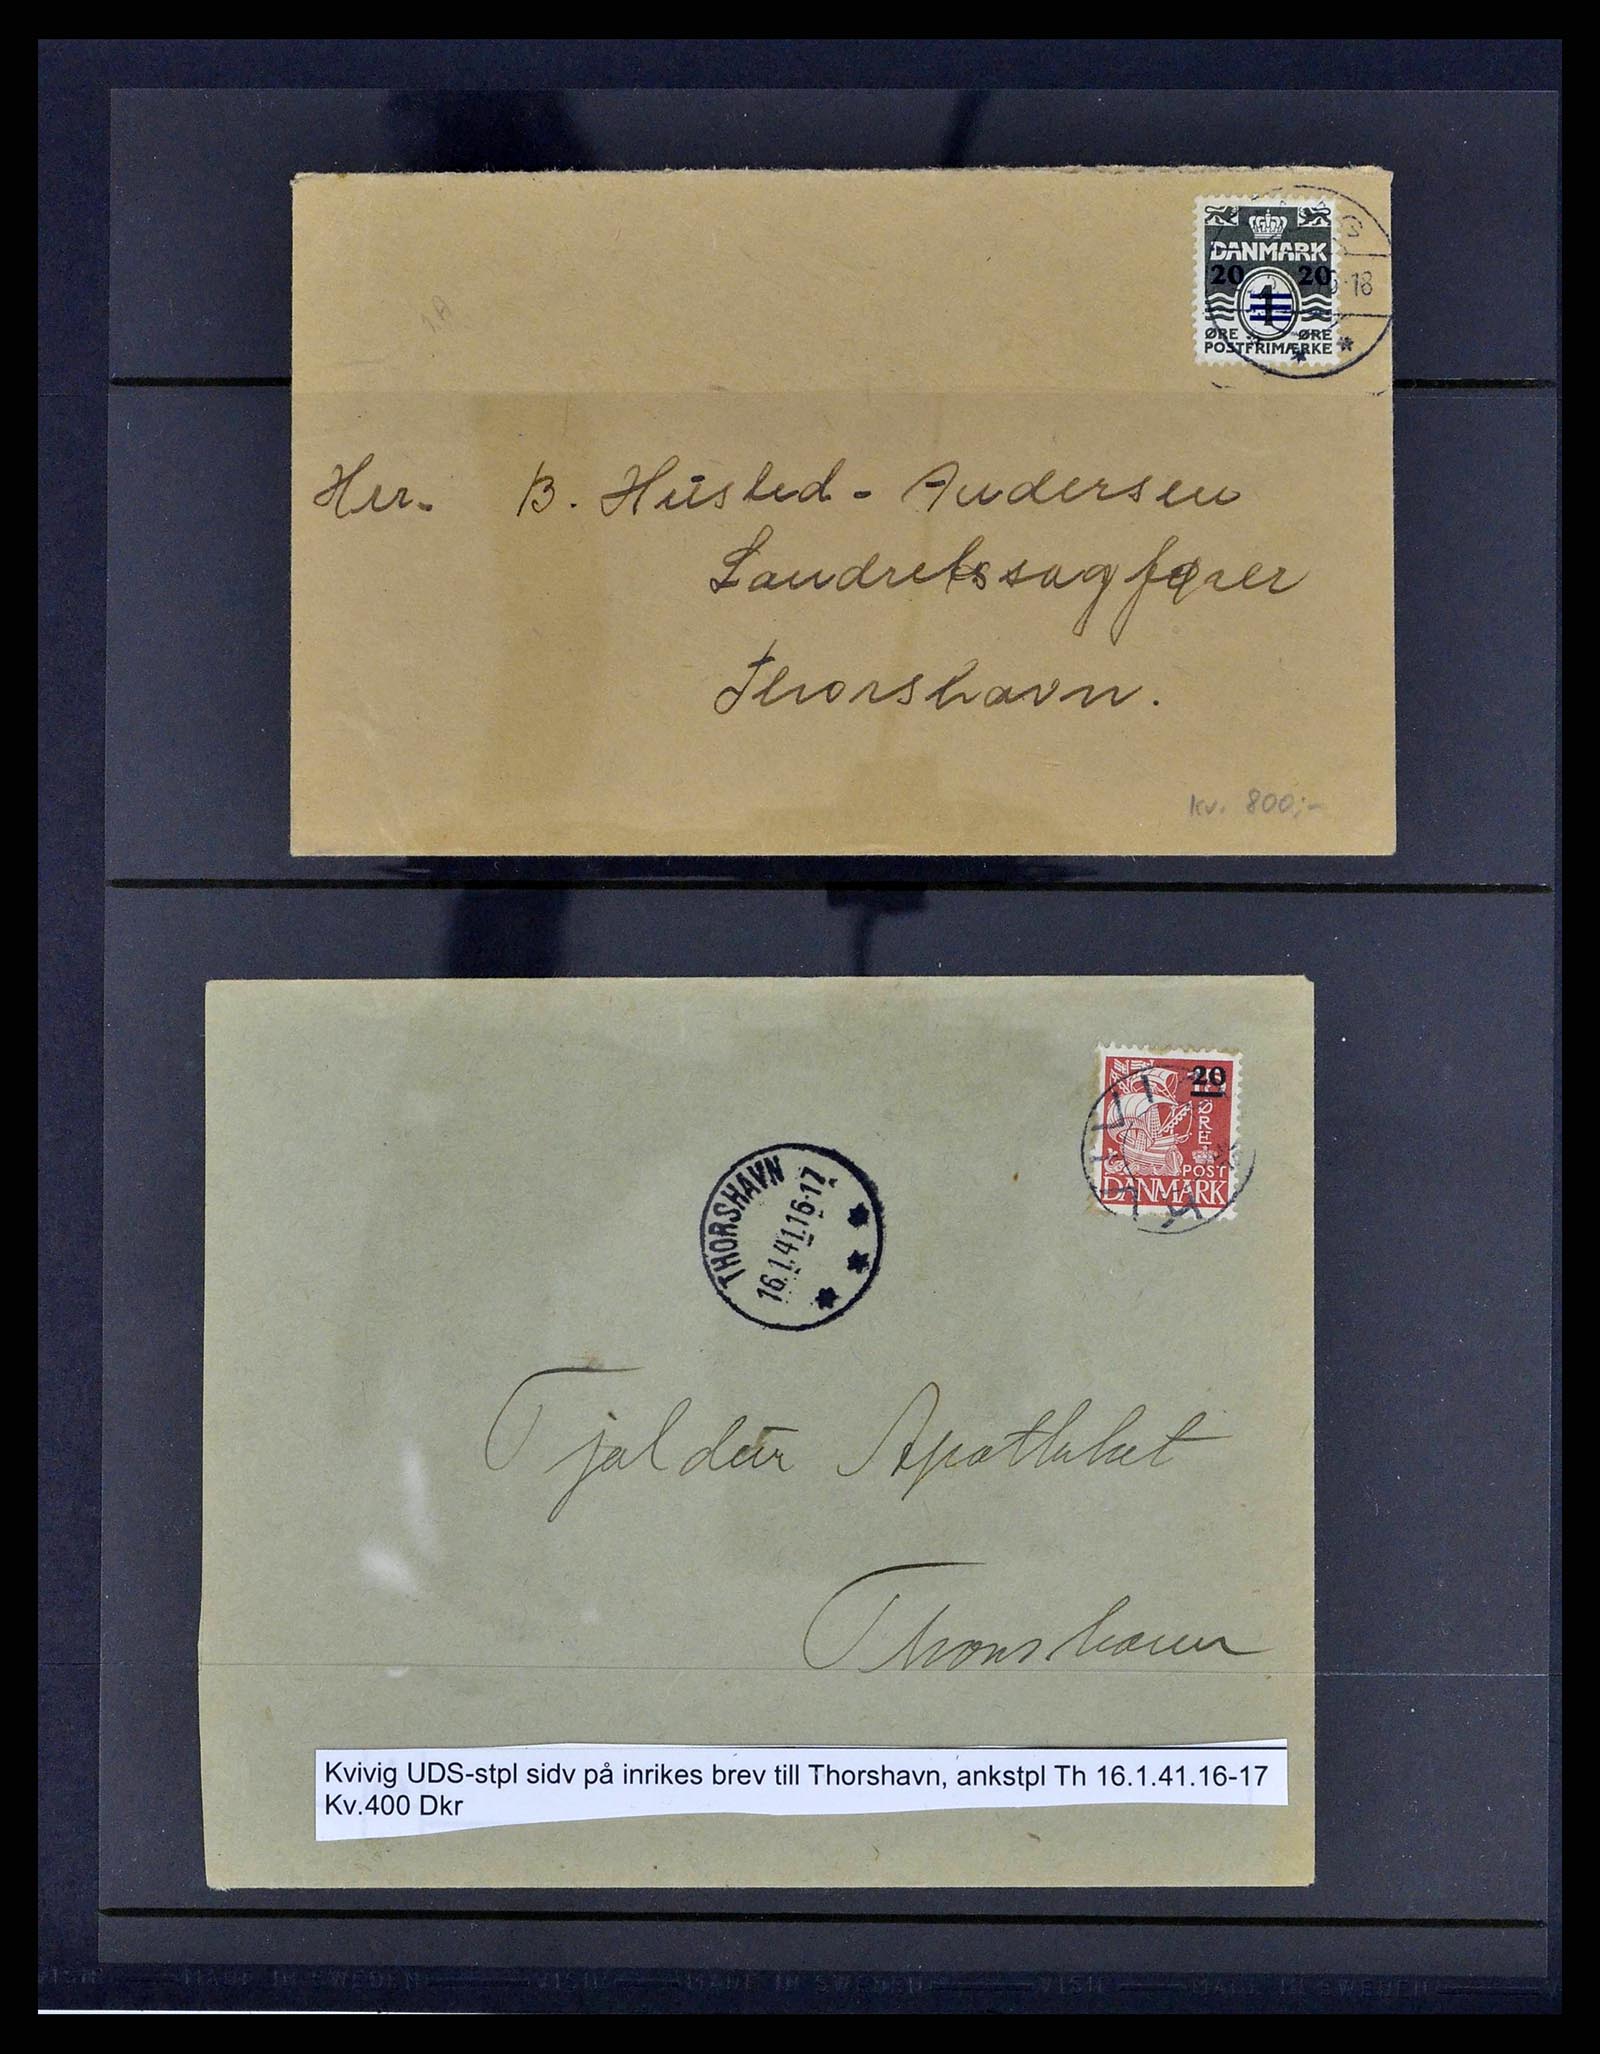 DANMARK
20 20
1
ØRE ØRE
POSTFRIMÆRKE
6-18
Hrr. B. Husted-Andersen
Landretssagfører
Thorshavn.
Kv. 800,-
20
ØRE
POST
DANMARK
KVIVIG
THORSHAVN
16.1.41.16-17
Tjaldur Apotheket
Thorshavn
Kvivig UDS-stpl sidv på inrikes brev till Thorshavn, ankstpl Th 16.1.41.16-17
Kv.400 Dkr
MADE IN SWEDEN VISIR MADE IN SWEDEN VISIR MADE IN SWEDEN